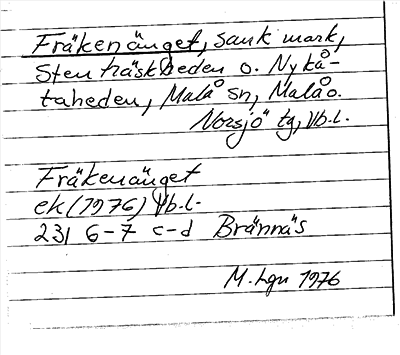 Fräkenänget, sank mark,
Stenträskheden o. Nykå-
taheden, Malå sn, Malå o.
Norsjö tg, Vb.l.
Fräkenänget
ek (1976) Vb.l.
23I 6-7 c-d Brännäs
M. Lgn 1976